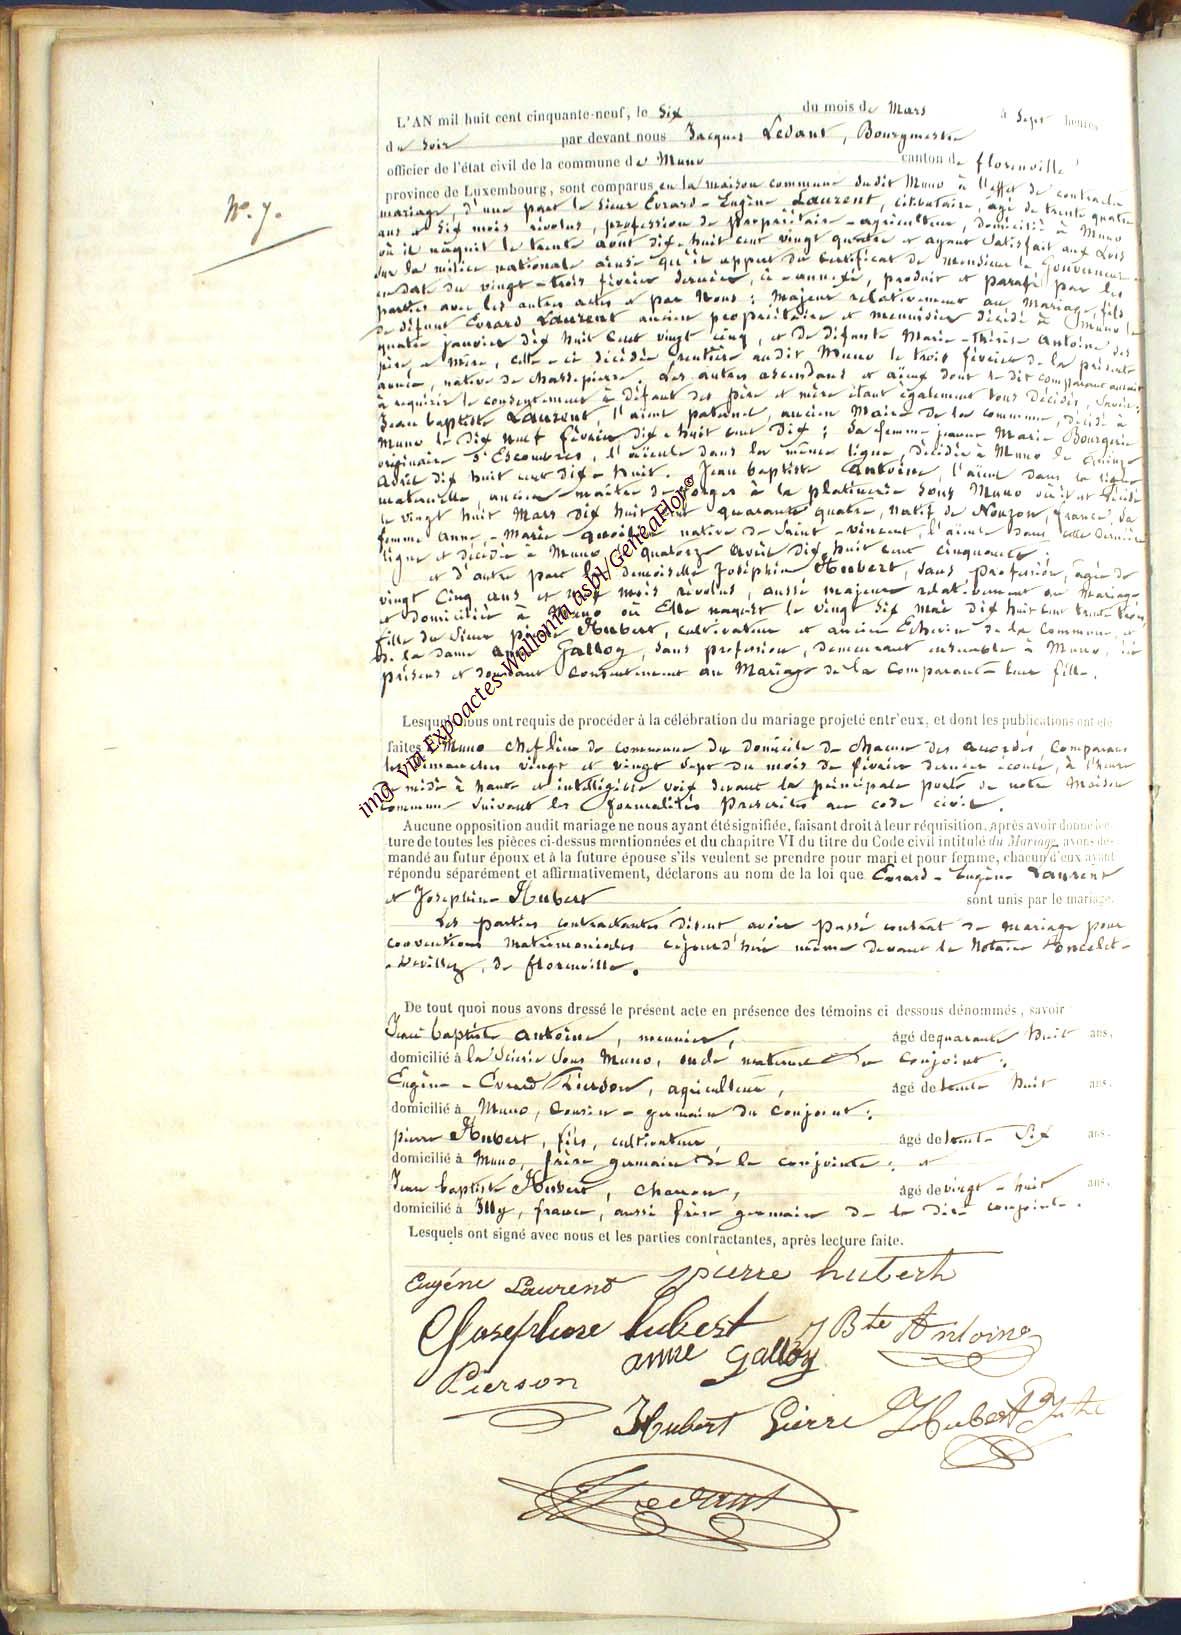 N°. 7.
L'AN mil huit cent cinquante-neuf, le Six du mois de Mars à Sept heures
du Soir par devant nous Jacques Ledant, Bourgmestre
officier de l'état civil de la commune de Muno canton de florenville
province de Luxembourg, sont comparus en la maison commune dudit Muno à l'effet de contracter
mariage, d'une part le Sieur Evrard-Eugène Laurent, célibataire, âgé de trente quatre
ans et Six mois révolus, profession de propriétaire-agriculteur, domicilié à Muno
où il naquit le trente août dix-huit cent vingt quatre et ayant Satisfait aux Lois
sur la milice nationale ainsi qu'il appert du Certificat de Monsieur le Gouverneur
en date du vingt-trois février dernier, ci-annexé, produit et parafé par les
parties avec les autres actes et par Nous; Majeur relativement au Mariage, fils
de défunt Evrard Laurent ancien propriétaire et menuisier décidé à Muno le
quatre janvier dix huit Cent vingt cinq, et de défunte Marie-Thérèse Antoine ses
père et mère, celle-ci décédée rentière audit Muno le trois février de la présente
année, native de Chassepierre. Les autres ascendans et aïeux dont le dit comparant aurait
à requérir le consentement à défaut des père et mère étant également tous décédés, Savoir:
Jean baptiste Laurent, l'aïeul paternel, ancien Maire de la commune, décédé à
Muno le dix neuf février dix-huit cent dix; Sa femme jeanne Marie Bourgerie
originaire d'Escombres, l'aïeule dans la même ligne, décédée à Muno le quinze
Avril dix huit cent dix-huit. Jean baptiste Antoine, l'aïeul dans la ligne
maternelle, ancien maître de forges à la platinerie Sous Muno où il est décédé
le vingt huit Mars dix huit cent quarante quatre, natif de Nouzon, france, Sa
femme Anne-Marie native de Saint-Vincent, l'aïeule dans cette dernière
ligne et décédée à Muno, quatorze avril dix huit cent cinquante;
et d'autre part la demoiselle Joséphine Hubert, Sans profession, âgée de
vingt Cinq ans et neuf mois révolus, aussi majeure relativement au Mariage
et domiciliée à Muno où Elle naquit le vingt Six mai dix huit cent trente trois,
fille du Sieur pierre Hubert, cultivateur et ancien Echevin de la Commune, et
de la dame Anne Galloy, sans profession, demeurant ensemble à Muno, ici
présens et donnant Consentement au Mariage de la Comparante leur fille.
Lesquels nous ont requis de procéder à la célébration du mariage projeté entr'eux, et dont les publications ont été
faites à Muno chef lieu de commune du domicile de chacun des accordés, Comparans
les dimanches vingt et vingt Sept du mois de février dernier écoulé, à l'heure
de midi à haute et intelligible voix devant la principale porte de notre Maison
commune Suivant les formalités Prescrites au code civil.
Aucune opposition audit mariage ne nous ayant été signifiée, faisant droit à leur réquisition, après avoir donné lec-
ture de toutes les pièces ci-dessus mentionnées et du chapitre VI du titre du Code civil intitulé du Mariage, avons de-
mandé au futur époux et à la future épouse s'ils veulent se prendre pour mari et pour femme, chacun d'eux ayant
répondu séparément et affirmativement, déclarons au nom de la loi que Evrard-Eugène Laurent
et Joséphine Hubert sont unis par le mariage.
Les parties contractantes disent avoir passé contrat de mariage pour
conventions matrimoniales cejourd'hui même devant le Notaire Poncelet-
-Devillez, de florenville.
De tout quoi nous avons dressé le présent acte en présence des témoins ci dessous dénommés, savoir
Jean baptiste Antoine, meunier, âgé de quarante Huit ans,
domicilié à la Scierie Sous Muno, oncle maternel du conjoint;
Eugène-Evrard Pierson, agriculteur, âgé de trente huit ans.
domicilié à Muno, Cousin-germain du Conjoint;
pierre Hubert, fils, cultivateur, âgé de trente Six ans.
domicilié à Muno, frère germain de la conjointe; et
Jean baptiste Hubert, charron, âgé de vingt-huit ans.
domicilié à Illy, france, aussi frère germain de la dite conjointe.
Lesquels ont signé avec nous et les parties contractantes, après lecture faite.
Eugéne Laurent pierre hubert
Josephine hubert J Bte Antoine
Pierson anne galloy
Hubert Pierre Hubert
JLedant
img via Expoactes-Wallonia asbl/GeneaFlor©